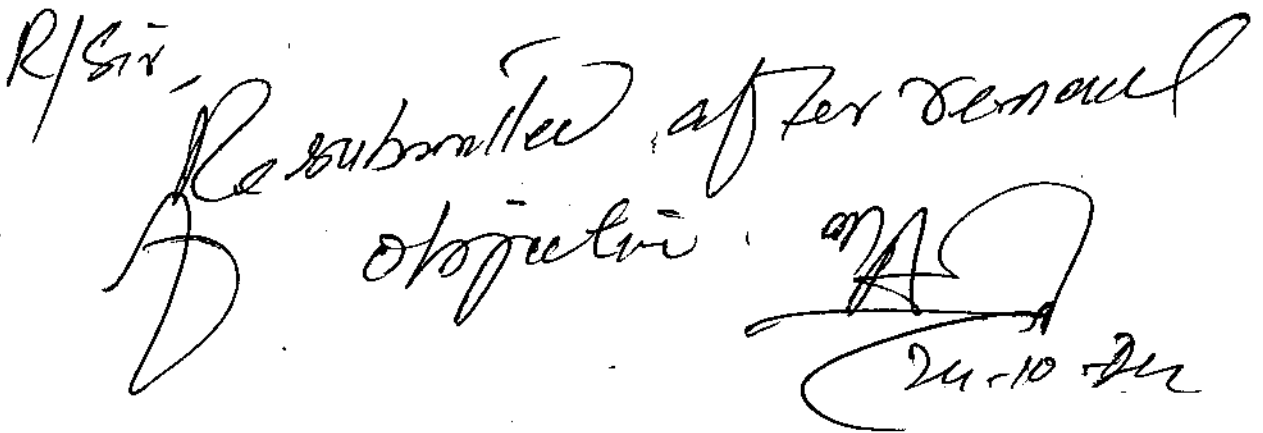 R/Sir,
Resubmitted after removal
of objection.
24-10-24